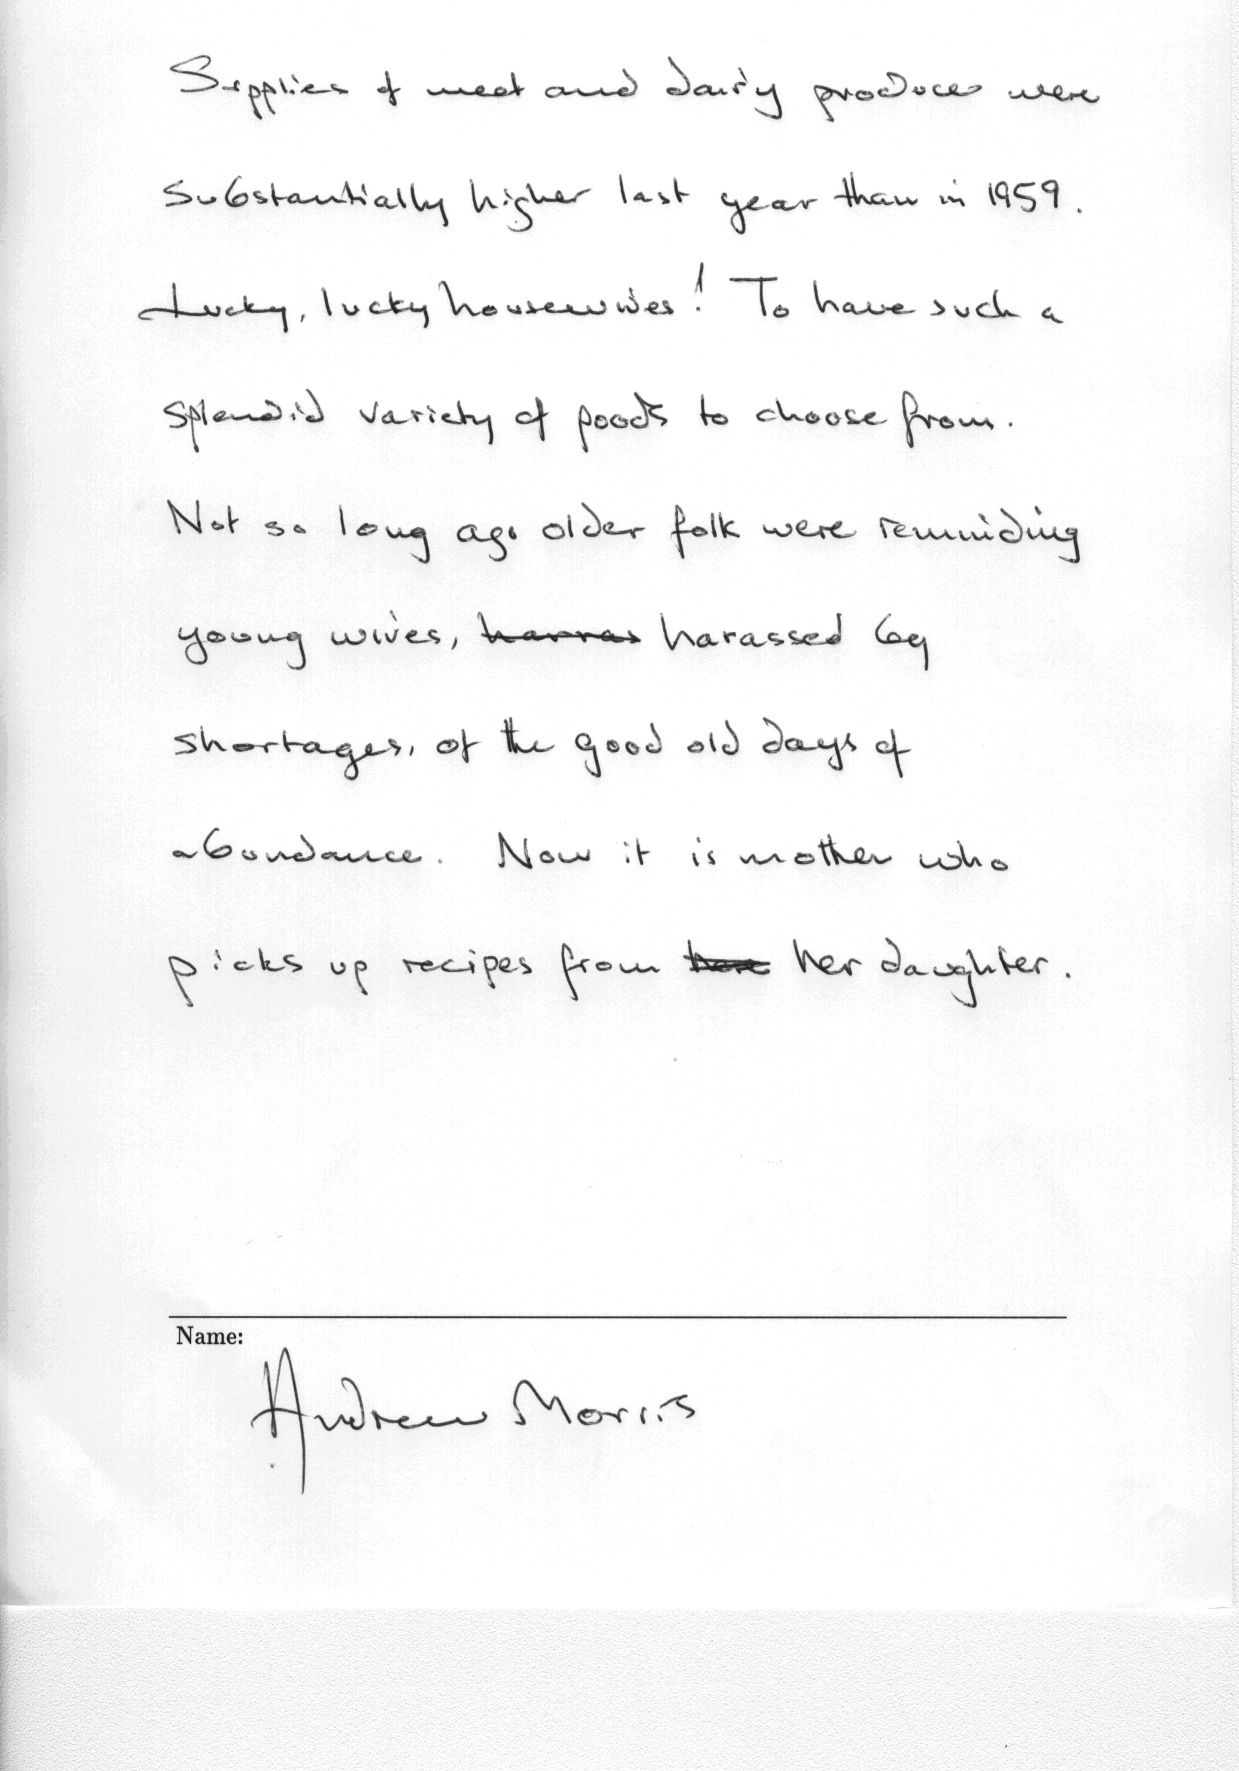 Supplies of meat and dairy produce were
substantially higher last year than in 1959.
Lucky, lucky housewives! To have such a
splendid variety of foods to choose from.
Not so long ago older folk were reminding
young wives, harras harassed by
shortages, of the good old days of
abundance. Now it is mother who
picks up recipes from her daughter.
Name:
Andrew Morris